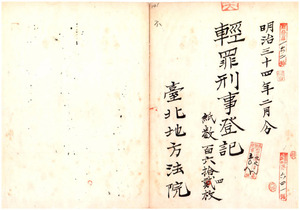 明治三十四年二月分
輕罪刑事登記
紙数百六拾貳枚
臺北地方法院